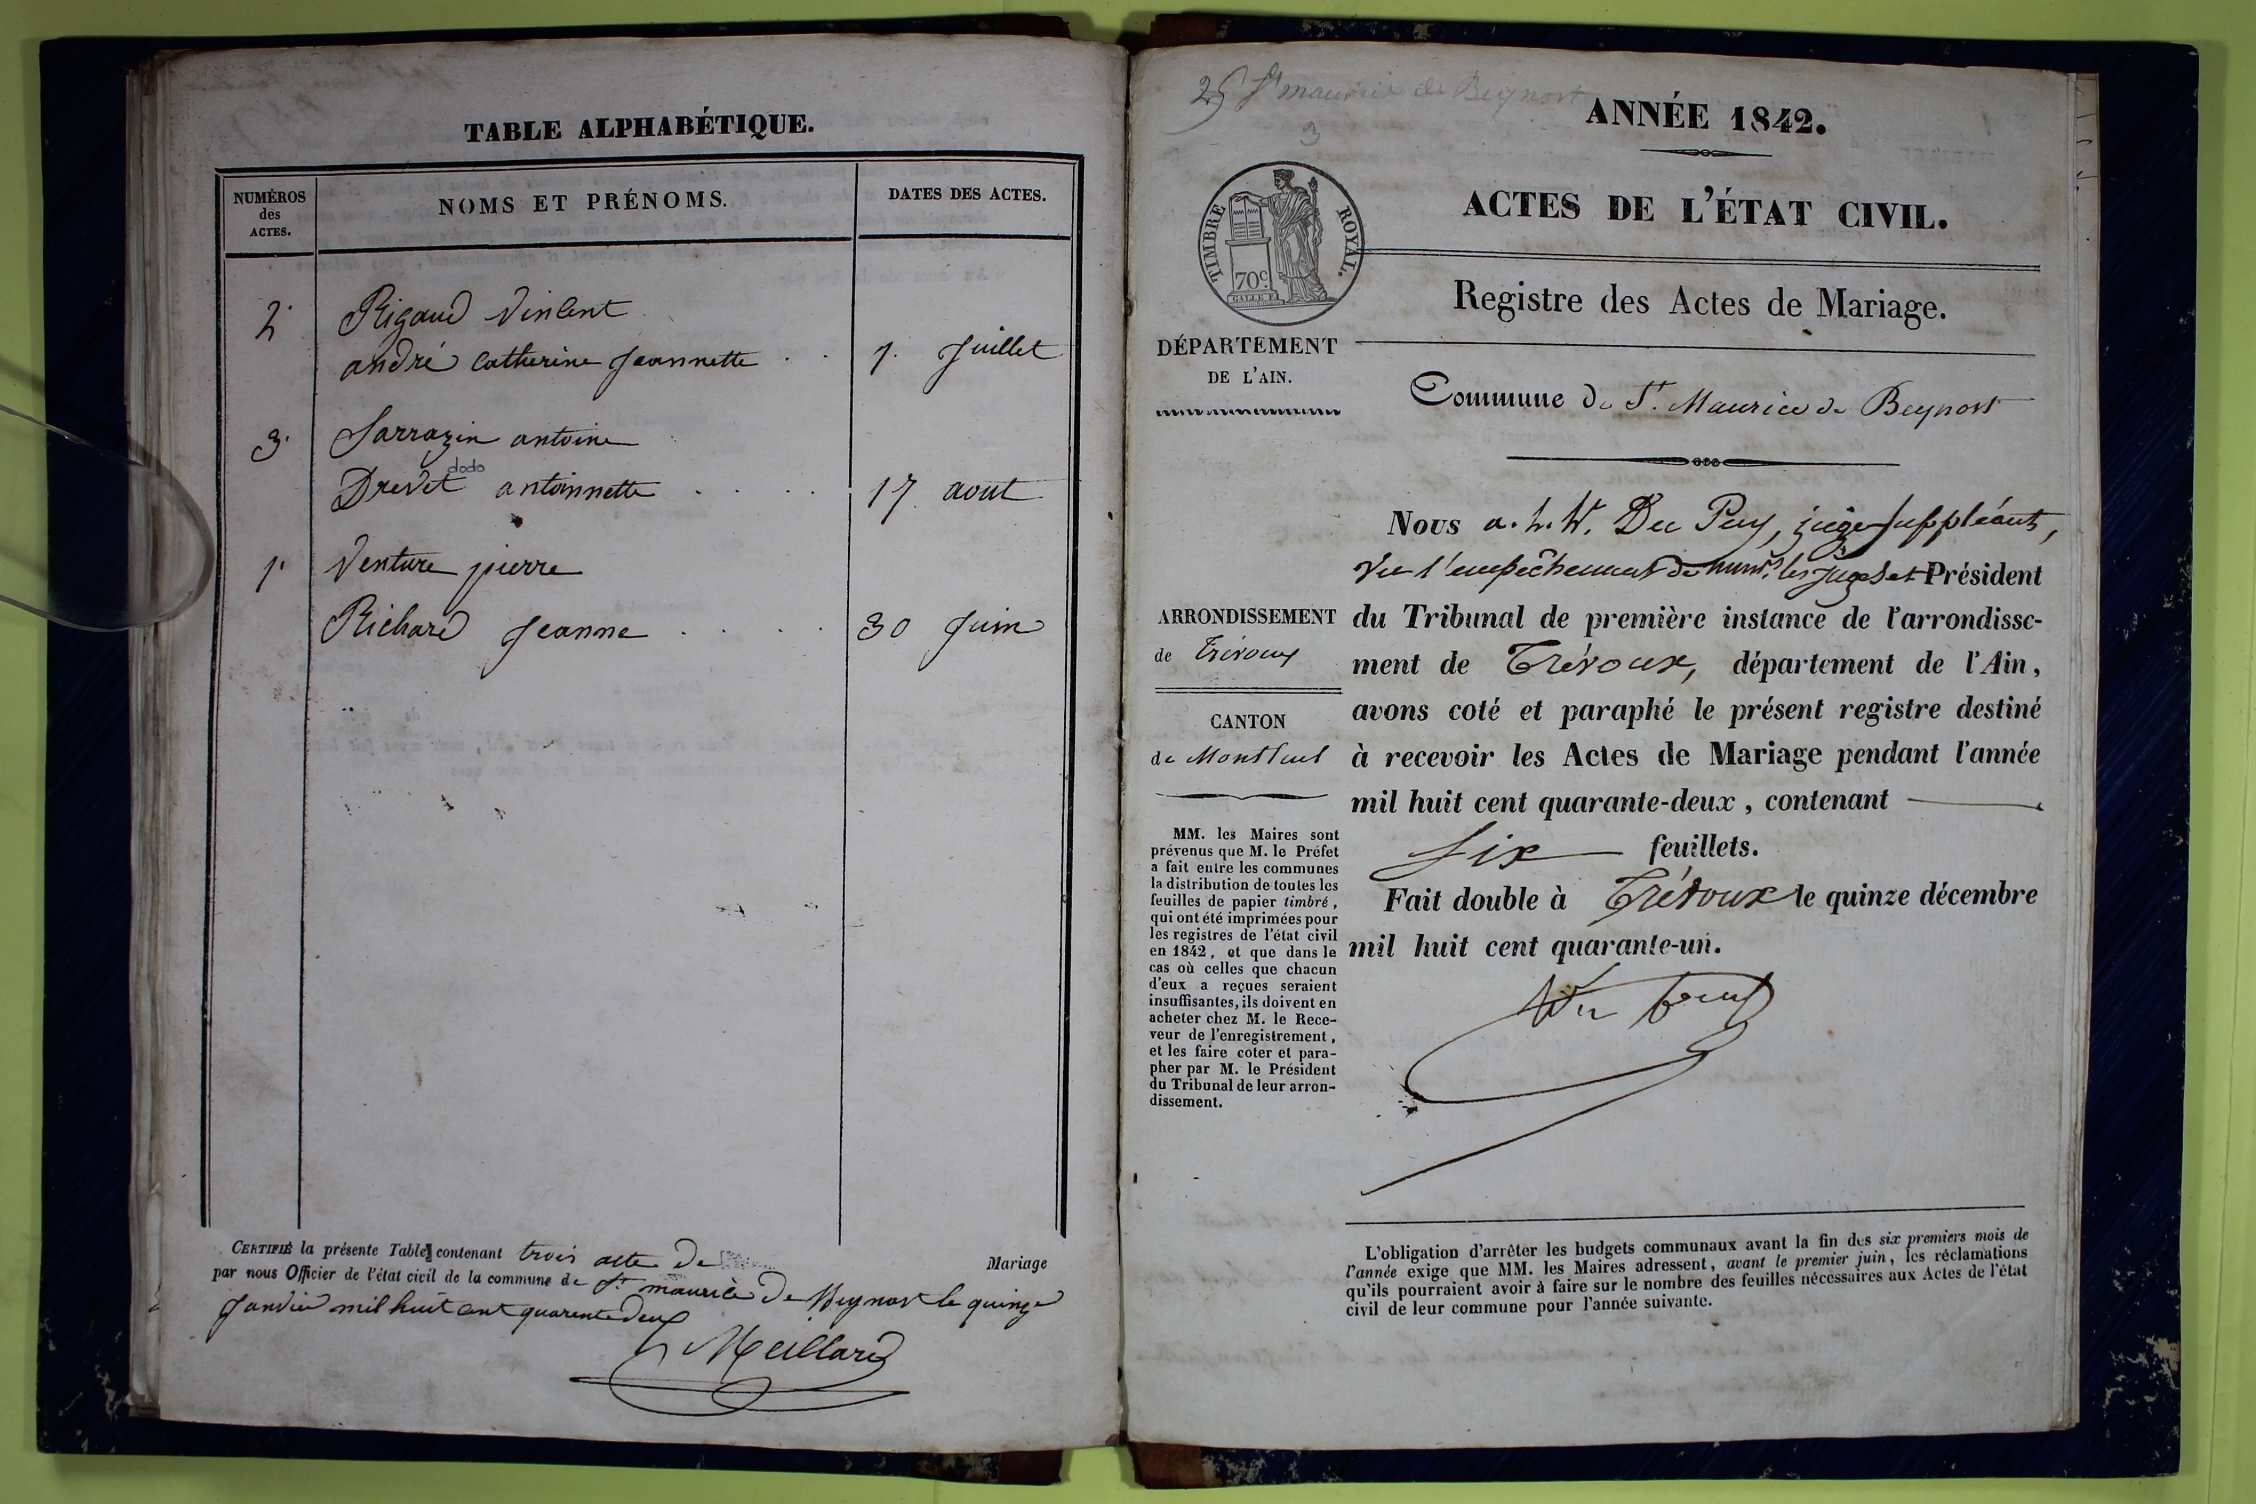 TABLE ALPHABÉTIQUE.
NUMÉROS
des
ACTES.
NOMS ET PRÉNOMS.
DATES DES ACTES.
2. Rigaud Vincent
andré Catherine Jeannette . . 1. Juillet
3. Sarrazin antoine
dodo
Drevet antoinnette . . . . 17. aout
1. Venture pierre
Richard Jeanne . . . . 30 Juin
CERTIFIÉ la présente Table contenant trois acte de Mariage
par nous Officier de l'état civil de la commune de St. maurice de Beynost le quinze
Janvier mil huit cent quarente deux
Meillard
25 St maurice de Beynost
3
ANNÉE 1842.
ACTES DE L'ÉTAT CIVIL.
TIMBRE ROYAL.
70c.
Registre des Actes de Mariage.
DÉPARTEMENT
DE L'AIN.
Commune de St. Maurice de Beynost
Nous a. h. W. Du Puy, juge suppléant,
Vu l'empêchement de mm. les juges et Président
ARRONDISSEMENT
de Trévoux
du Tribunal de première instance de l'arrondisse-
ment de Trévoux, département de l'Ain,
avons coté et paraphé le présent registre destiné
à recevoir les Actes de Mariage pendant l'année
mil huit cent quarante-deux, contenant
six feuillets.
Fait double à Trévoux le quinze décembre
mil huit cent quarante-un.
CANTON
de Montluel
MM. les Maires sont
prévenus que M. le Préfet
a fait entre les communes
la distribution de toutes les
feuilles de papier timbré,
qui ont été imprimées pour
les registres de l'état civil
en 1842, et que dans le
cas où celles que chacun
d'eux a reçues seraient
insuffisantes, ils doivent en
acheter chez M. le Rece-
veur de l'enregistrement,
et les faire coter et para-
pher par M. le Président
du Tribunal de leur arron-
dissement.
L'obligation d'arrêter les budgets communaux avant la fin des six premiers mois de
l'année exige que MM. les Maires adressent, avant le premier juin, les réclamations
qu'ils pourraient avoir à faire sur le nombre des feuilles nécessaires aux Actes de l'état
civil de leur commune pour l'année suivante.